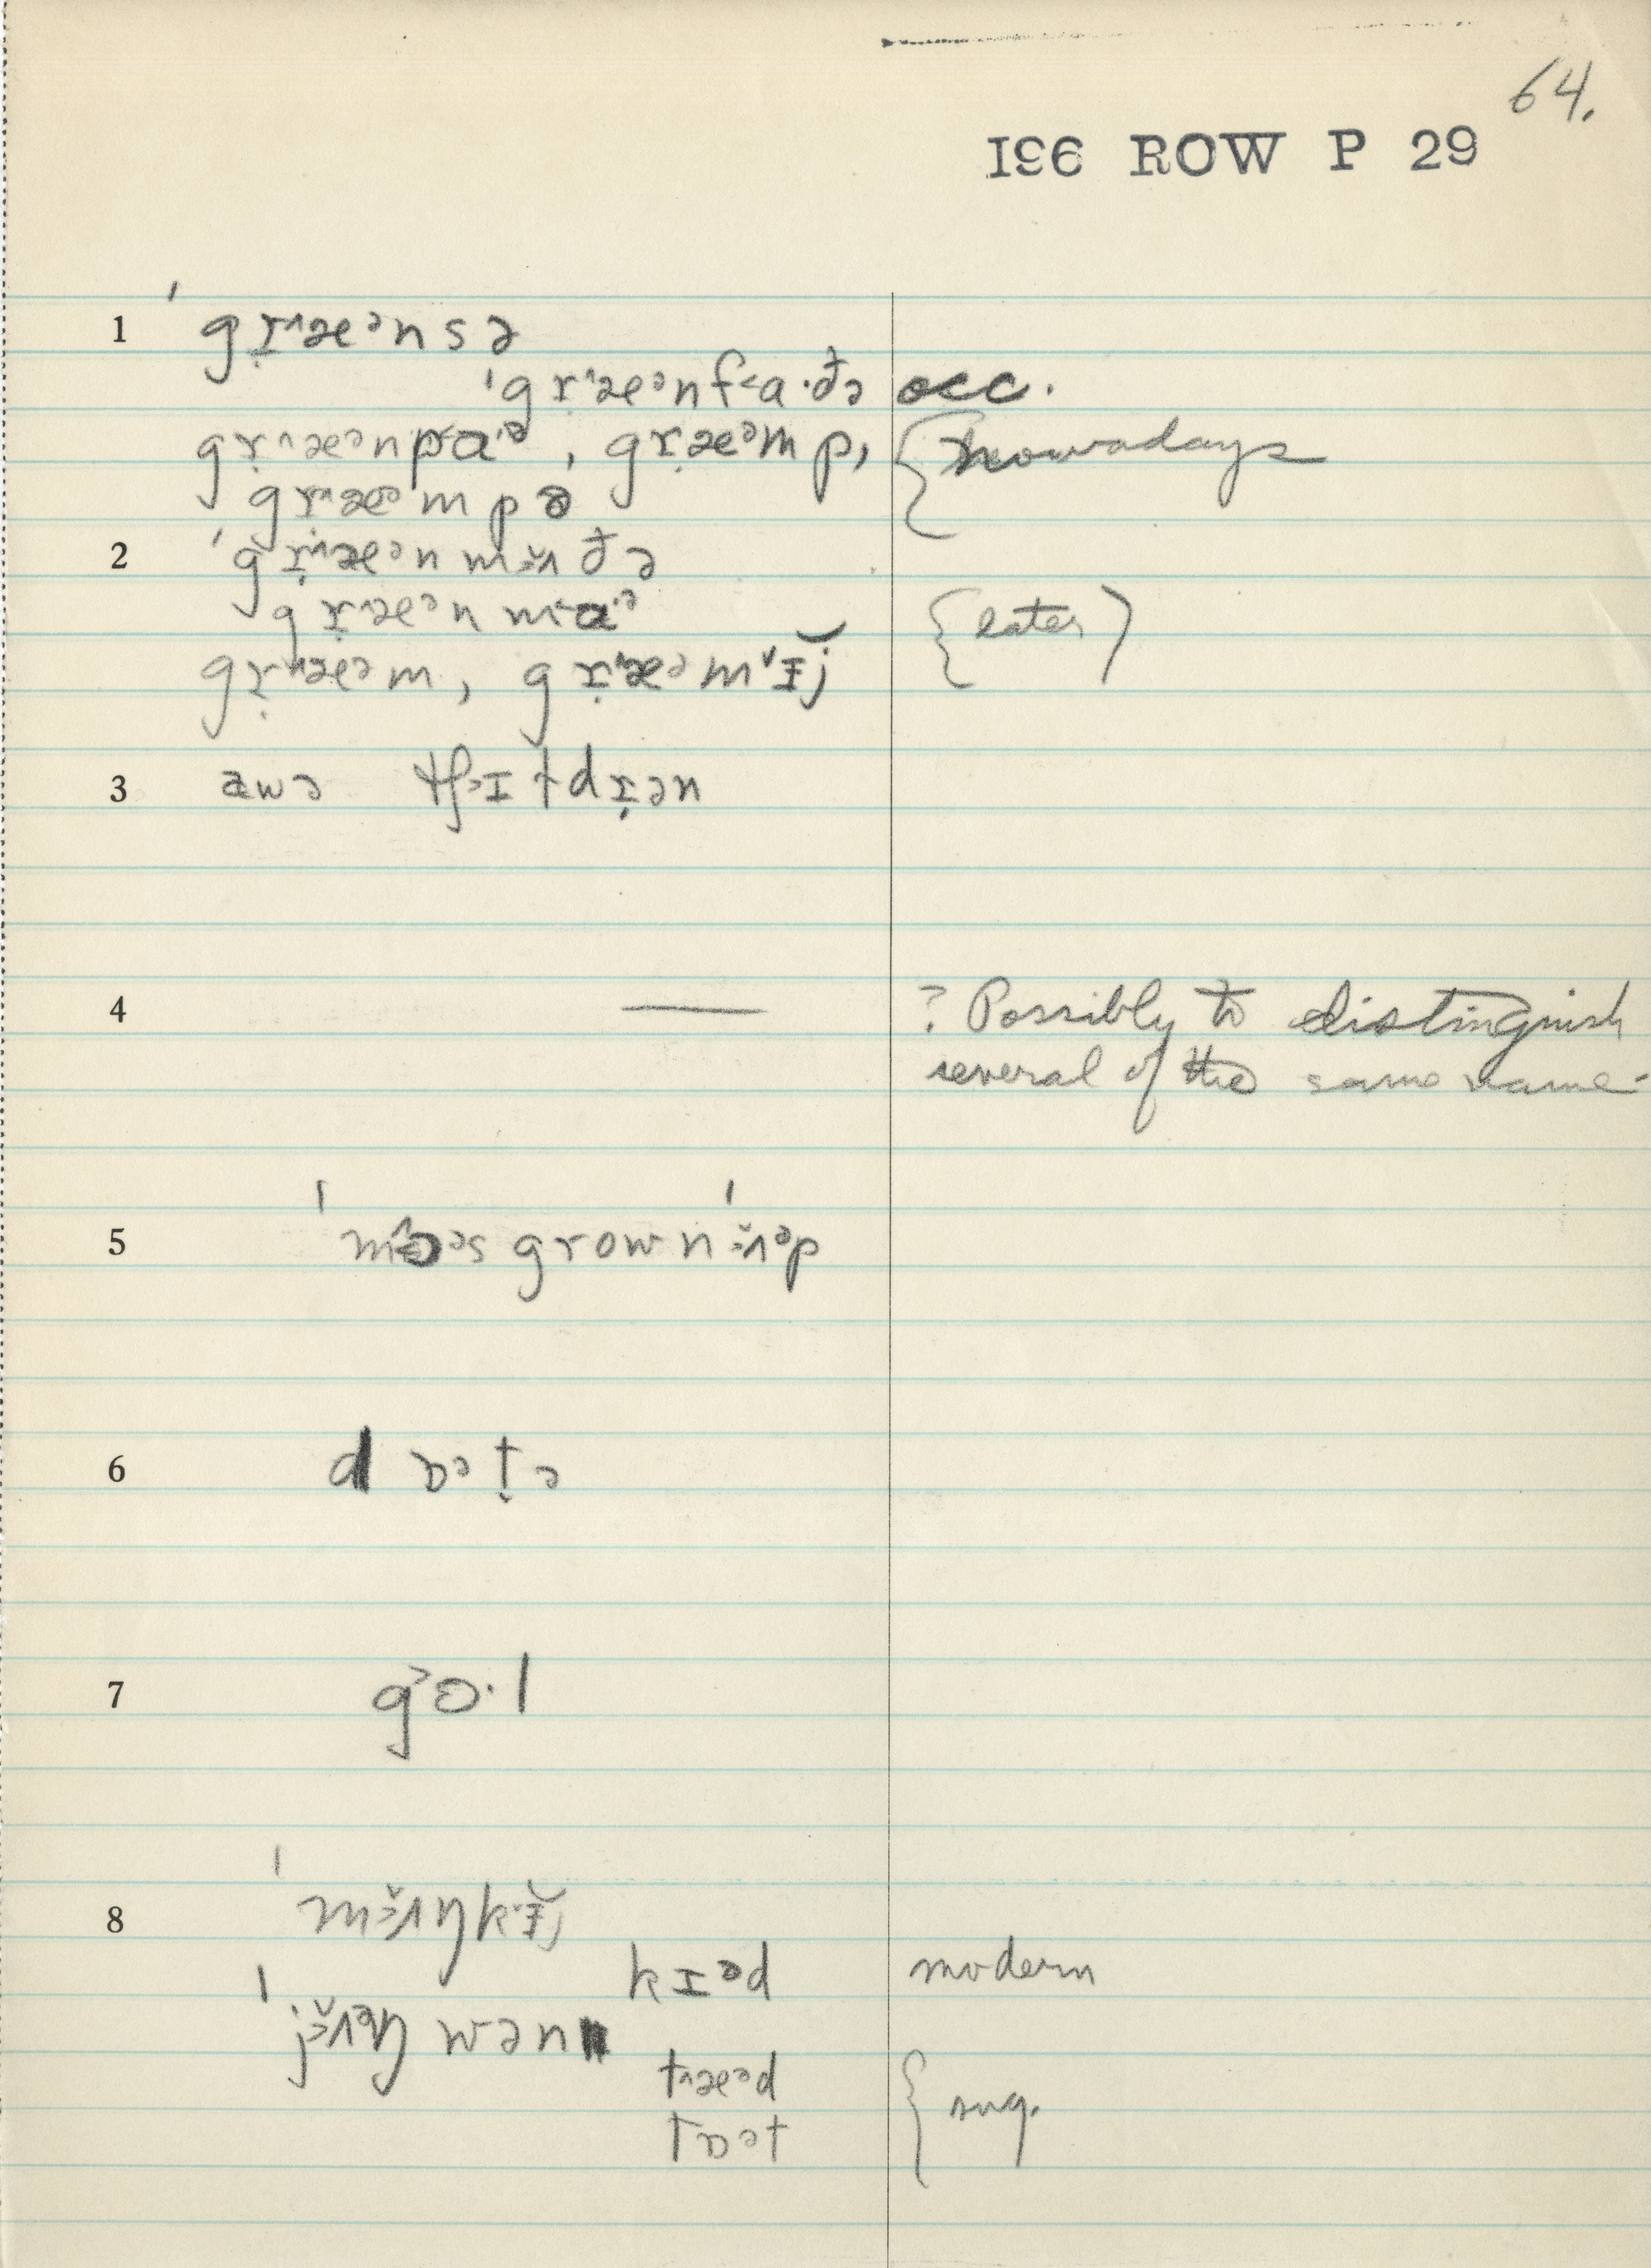 64.
196 ROW P 29
1 ˈgr̩˄æᵊnsə
ˈgr̩˄æᵊnf˂a·ðə occ.
gr̩˄æᵊnp˂aˑᵊ, gr̩æᵊmp, { nowadays
gr̩˄æᵊmpə
2 ˈgr̩˄æᵊn mɜ̆ʌðə
gr̩˄æᵊn m˂aˑᵊ { later }
gr̩˄æᵊm, gr̩˄æᵊm˅ɪ̆j
3 awə tʃ˃ɪtdr̩ən
4 — ? Possibly to distinguish
several of the same name.
5 ˈm ɔᵊs grownˈɜ̆ʌᵊp
6 d ɒᵊt̬ə
7 g˃ɔ·l
8 ˈmɜ̆ʌŋk˅ɪ̆j
kɪᵊd modern
ˈjɜ̆ʌᵊŋ wən
t˄æᵊd { sug.
tɒᵊt